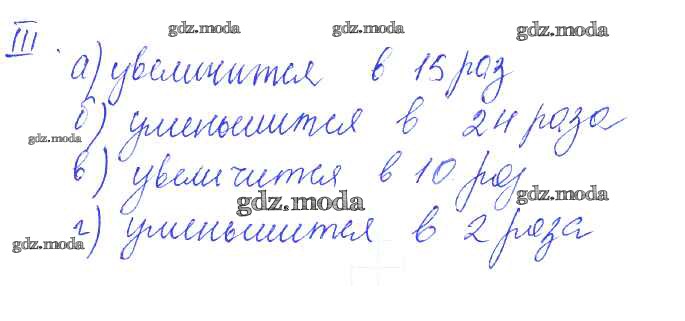 gdz.moda gdz.moda gdz.moda
III. а) увеличится в 15 раз
б) уменьшится в 24 раза
gdz.moda
в) увеличится в 10 раз
gdz.moda gdz.moda
г) уменьшится в 2 раза
gdz.moda gdz.moda